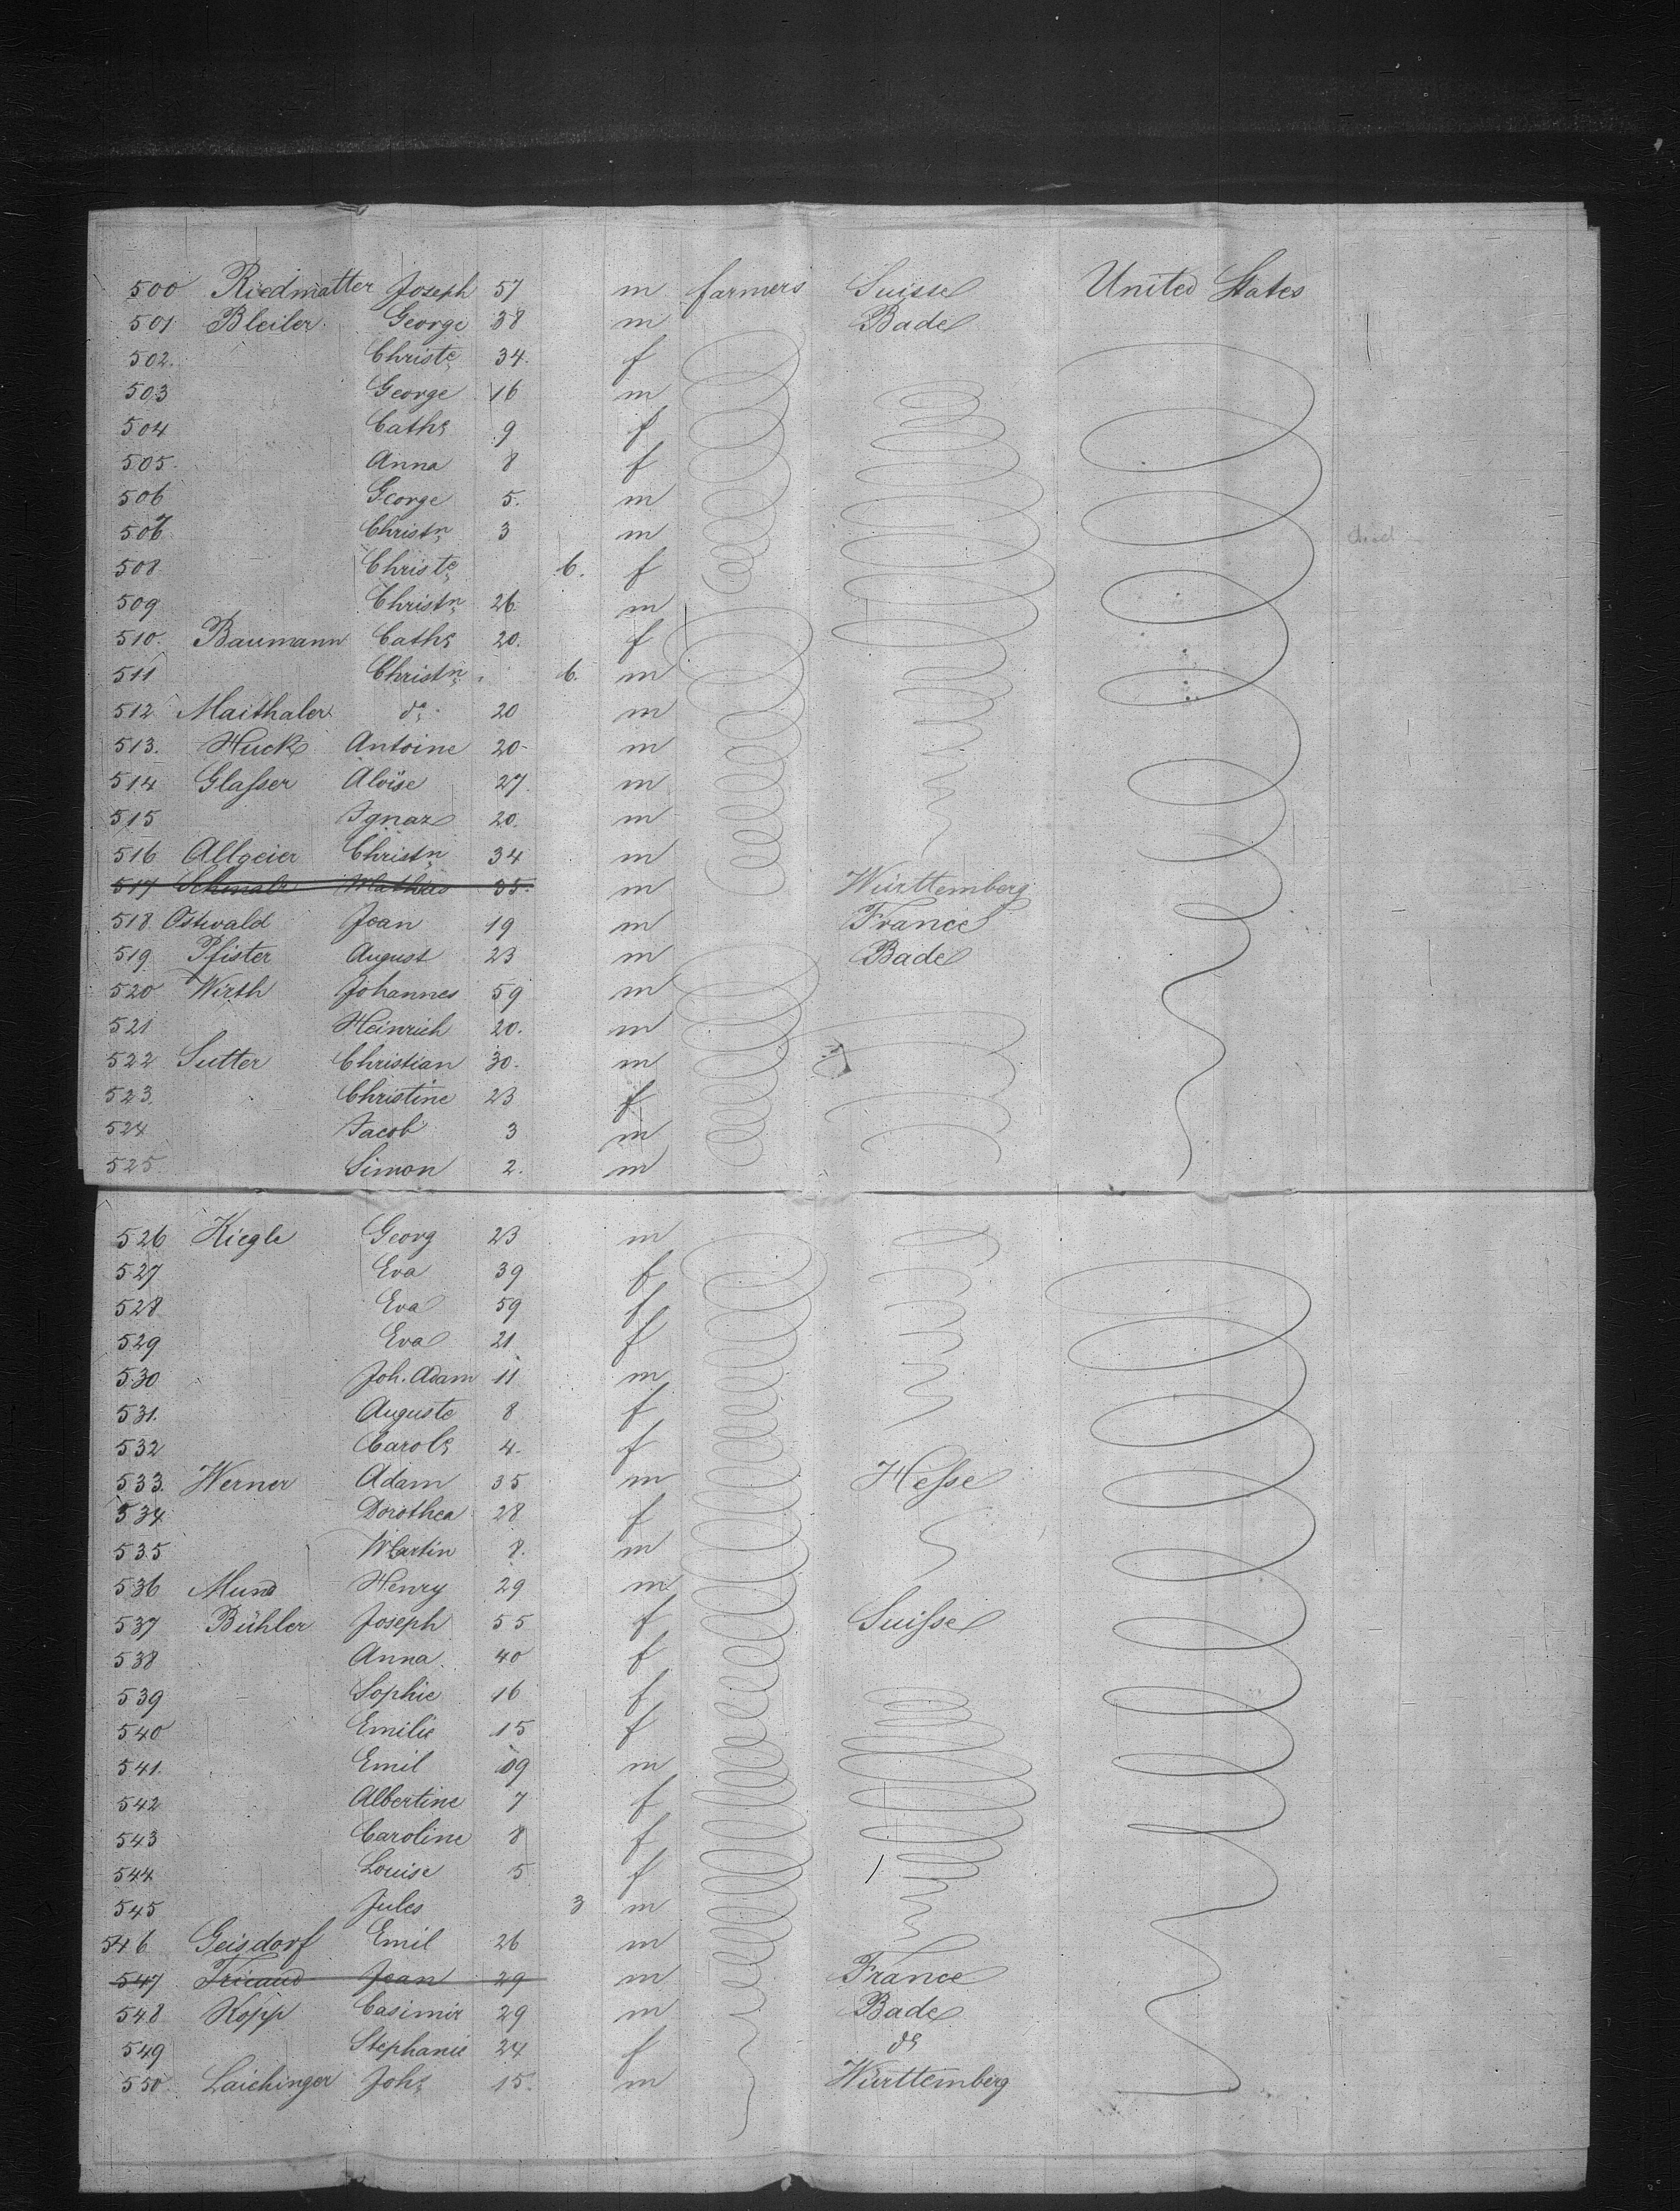 500 Riedmatter Joseph 57 m farmers Suisse United States
501 Bleiler George 38 m Bade
502. Christe 34. f
503 George 16 m
504 Cathe 9 f
505. Anna 8 f
506 George 5. m
507 Christn 3 m
508 Christe 6. f
509 Christn 26 m
510. Baumann Cathe 20. f
511 Christn. 6. m
512 Maithaler do 20 m
513. Huck Antoine 20 m
514 Glasser Aloïse 27. m
515 Ignaz 20. m
516 Allgeier Christn 34 m
517 Schmalz Mathias 35. m Württemberg
518 Ostwald Jean 19 m France
519 Pfister August 23 m Bade
520 Wirth Johannes 59 m
521 Heinrich 20. m
522 Sutter Christian 30. m
523. Christine 23 f
524 Jacob 3 m
525. Simon 2. m
526 Kiegle Georg 23 m
527 Eva 39 f
528 Eva 59 f
529 Eva 21 f
530 Joh. Adam 11 m
531. Auguste 8 f
532 Carole 4. f
533. Werner Adam 35 m Hesse
534 Dorothea 28 f
535 Martin 8. m
536 Mund Henry 29 m
537 Bühler Joseph 55 f Suisse
538 Anna 40 f
539 Sophie 16 f
540 Emilie 15 f
541. Emil 09 m
542 Albertine 7 f
543 Caroline 8 f
544 Louise 5 f
545 Jules 3 m
546 Geisdorf Emil 26 m
547 Jean 29 m France
548 Kopp Casimir 29 m Bade
549 Stephanie 24 f do
550 Laichinger Johs 15. m Württemberg